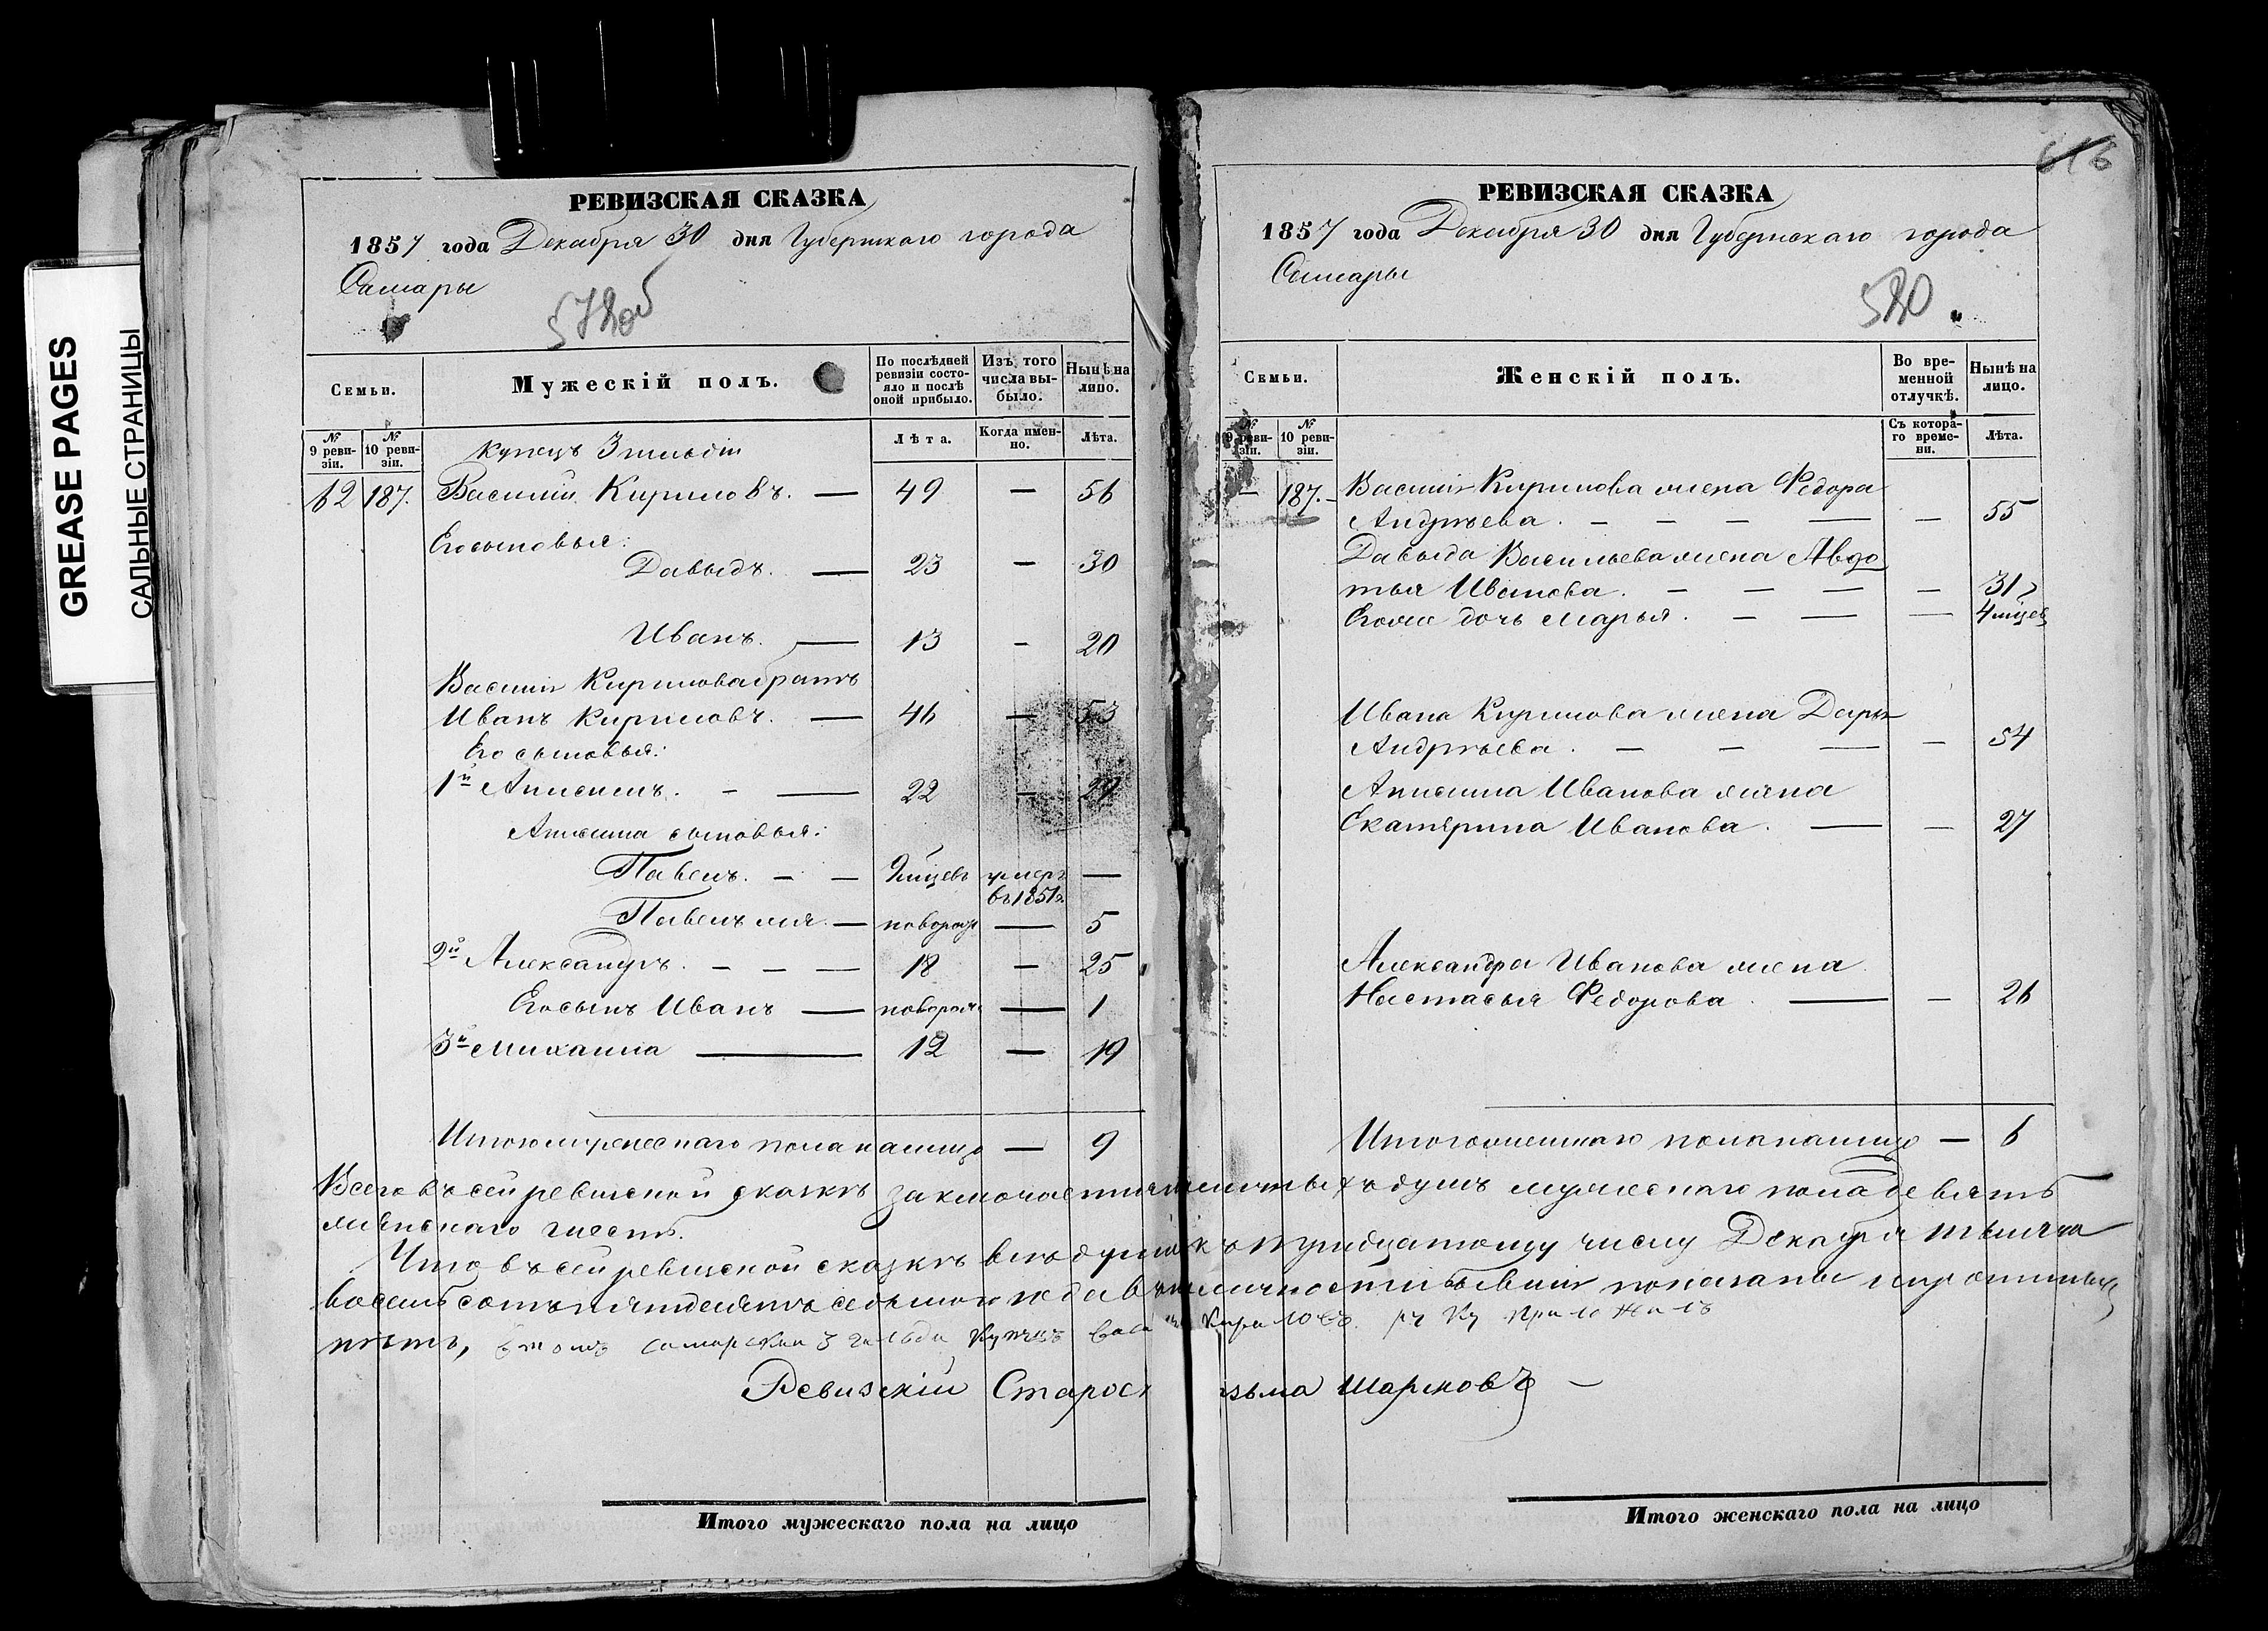 GREASE PAGES
САЛЬНЫЕ СТРАНИЦЫ
РЕВИЗСКАЯ СКАЗКА
1857 года Декабря 30 дня Губернскаго города
Самары
579об
Семьи.
Мужескій полъ.
По послѣдней ревизіи состояло и послѣ оной прибыло.
Изъ того числа выбыло.
Нынѣ на лицо.
№ 9 ревизіи.
№ 10 ревизіи.
Лѣта.
Когда именно.
Лѣта.
Купецъ 3 гильдіи
62 187. Василій Кириловъ. — 49 — 56
Его сыновья:
Давыдъ. — 23 — 30
Иванъ. — 13 — 20
Василія Кирилова братъ
Иванъ Кириловъ. — 46 — 53
Его сыновья:
1й Анисимъ. - — 22 — 29
Анисима сыновья:
Павелъ. — — 9 мѣцевъ умеръ —
въ 1851 г.
Павелъ же. — новорож — 5
2й Александръ. — — — 18 — 25
Его сынъ Иванъ — новорож — 1
3й Михаила — 12 — 19
Итого мужескаго пола налицо — 9
РЕВИЗСКАЯ СКАЗКА
1857 года Декабря 30 дня Губернскаго города
Самары
580
616
Семьи.
Женскій полъ.
Во временной отлучкѣ.
Нынѣ на лицо.
№ 9 ревизіи.
№ 10 ревизіи.
Съ котораго времени.
Лѣта.
— 187. Василія Кирилова жена Федора
Андрѣева. — — — — — 55
Давыда Васильева жена Авдо
тья Иванова. — — — — 31
Его же дочь Марья. — — — 4 мѣцев
Ивана Кирилова жена Дарья
Андрѣева. — — — — 54
Анисима Иванова жена
Екатерина Иванова. — — 27
Александра Иванова жена
Настасья Федорова. — — 26
Итого женскаго пола налицо — 6
Всего въ сей ревизской сказкѣ заключается наличныхъ душъ мужескаго пола девять
женскаго шесть.
Что въ сей ревизской сказкѣ всѣ души къ тридцатому числу Декабря тысяча
восемьсотъ пятьдесятъ седьмаго года въ наличности бывшія показаны и прописныхъ
нѣтъ, в томъ самарскаи 3 гильди купецъ Васи Кириловъ руку приложилъ
Ревизскій Старос зьма Шарковъ —
Итого мужескаго пола на лицо
Итого женскаго пола на лицо